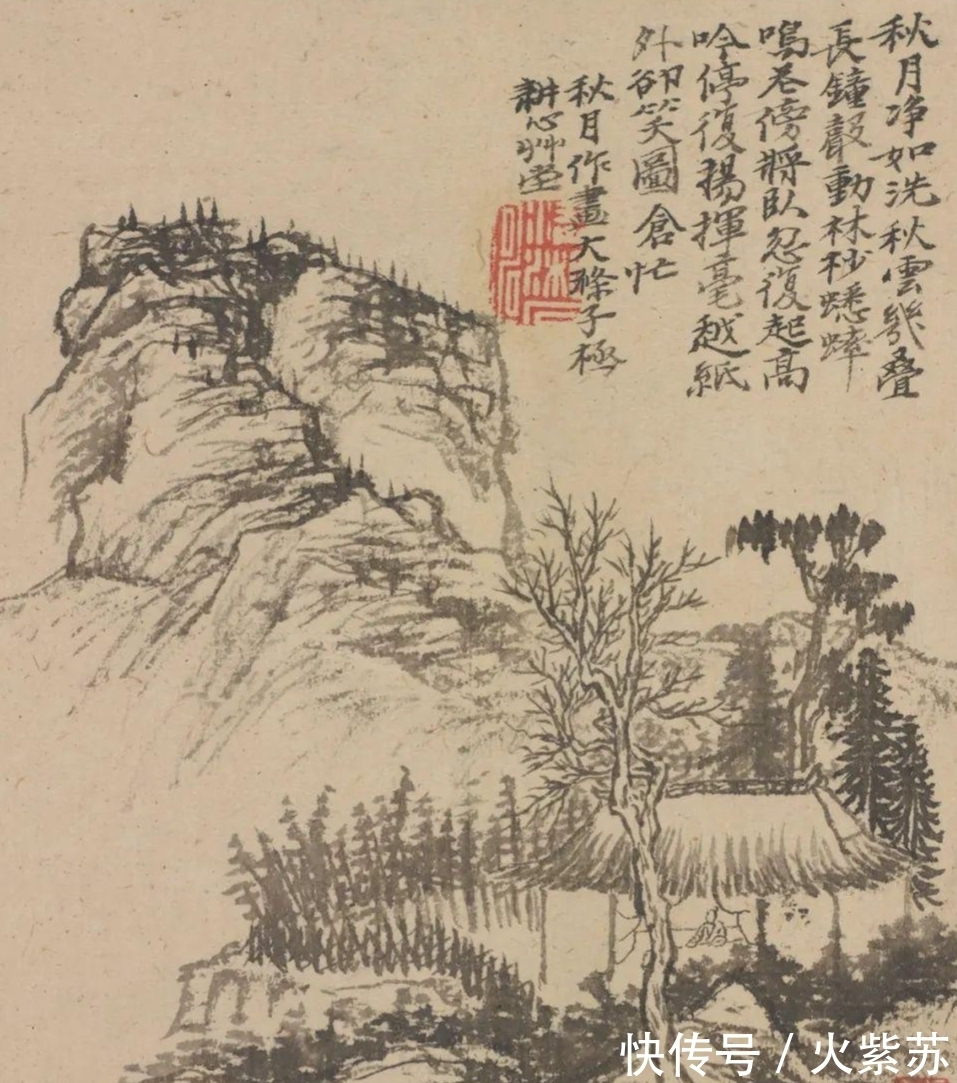 秋月净如洗秋雲幾叠
長鐘聲動林杪蟋蟀
鳴卷傍將臥忽復起高
吟停復揚揮毫越紙
外卻笑圖倉忙
秋月作畫大滌子極
耕心艸堂
快传号 / 火紫苏